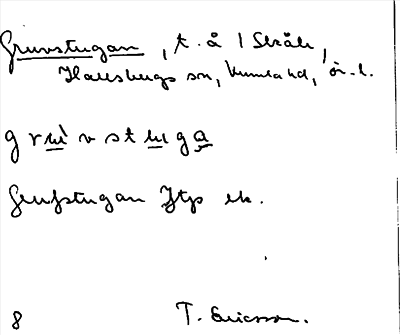 Gruvstugan, t. å 1 Stråle,
Hallsbergs sn, Kumla hd, ör. l.
grùvstuga
Grufstugan Jtp ek.
8 T. Ericsson.